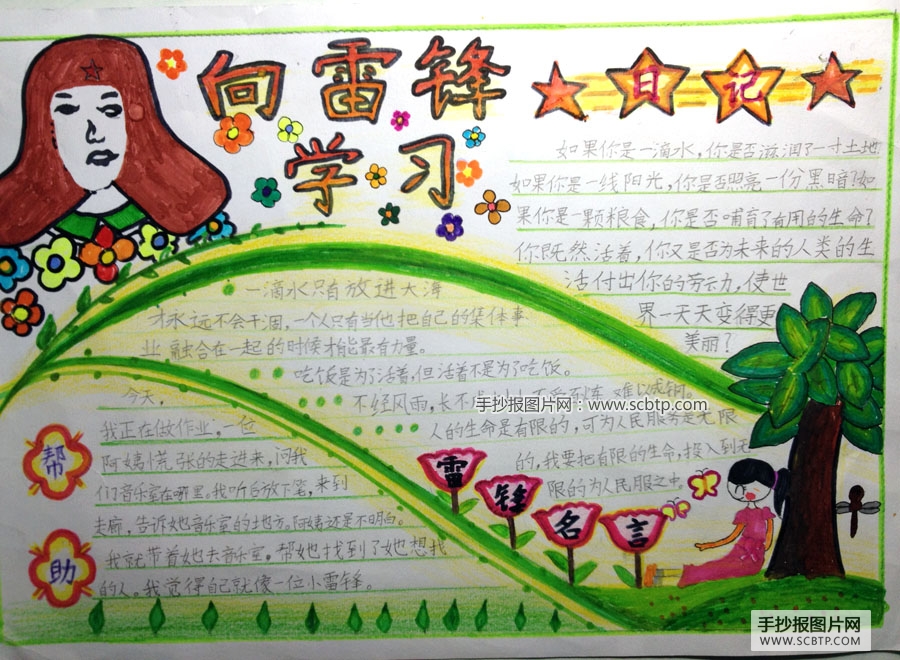 向雷锋
学习
日记
如果你是一滴水，你是否滋润了一寸土地
如果你是一线阳光，你是否照亮一份黑暗？如
果你是一颗粮食，你是否哺育了有用的生命？
你既然活着，你又是否为未来的人类的生
活付出你的劳动力，使世
界一天天变得更
美丽？
一滴水只有放进大海
才永远不会干涸，一个人只有当他把自己的集体事
业融合在一起的时候才能最有力量。
吃饭是为了活着，但活着不是为了吃饭。
不经风雨，长不成 难以成钢。
人的生命是有限的，可为人民服务是无限
的，我要把有限的生命，投入到无
限的为人民服之中。
雷锋名言
帮助
今天，
我正在做作业，一位
阿姨慌张的走进来，问我
们音乐室在哪里。我听后放下笔，来到
走廊，告诉她音乐室的地方。阿姨还是不明白。
我就带着她去音乐室。帮她找到了她想找
的人。我觉得自己就像一位小雷锋。
手抄报图片网：www.scbtp.com
手抄报图片网
WWW.SCBTP.COM